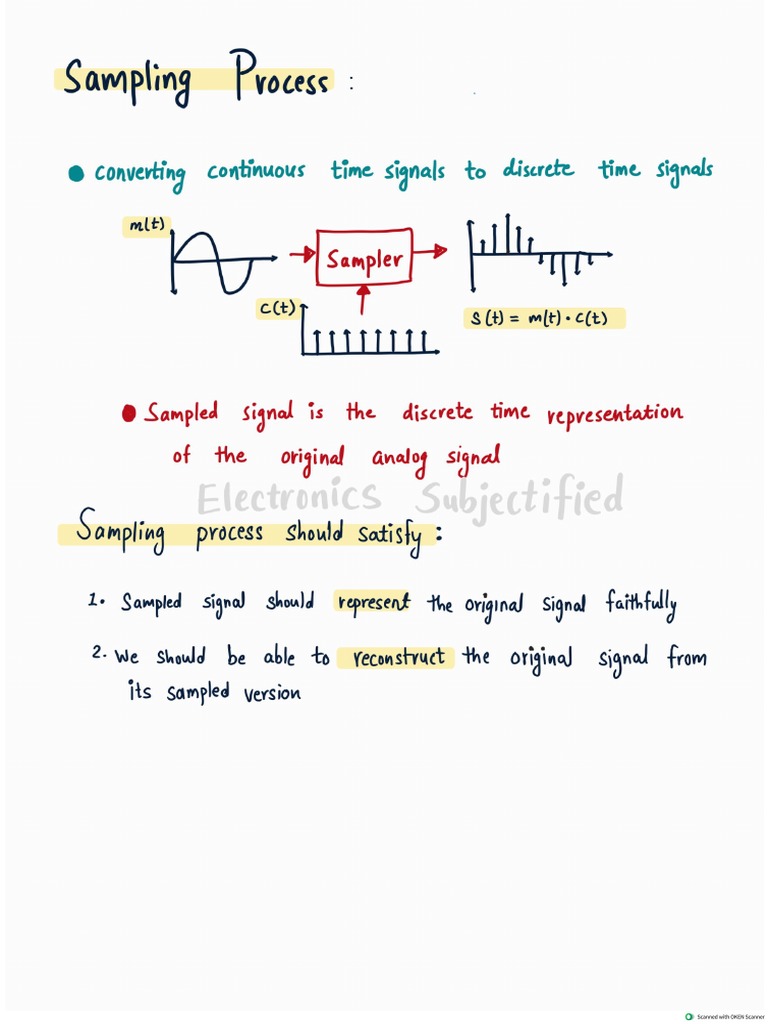 Sampling Process :
• Converting continuous time signals to discrete time signals
m(t)
Sampler
C(t)
S(t) = m(t) · C(t)
• Sampled signal is the discrete time representation
of the original analog signal
Electronics Subjectified
Sampling process should satisfy :
1. Sampled signal should represent the original signal faithfully
2. We should be able to reconstruct the original signal from
its sampled version
Scanned with OKEN Scanner